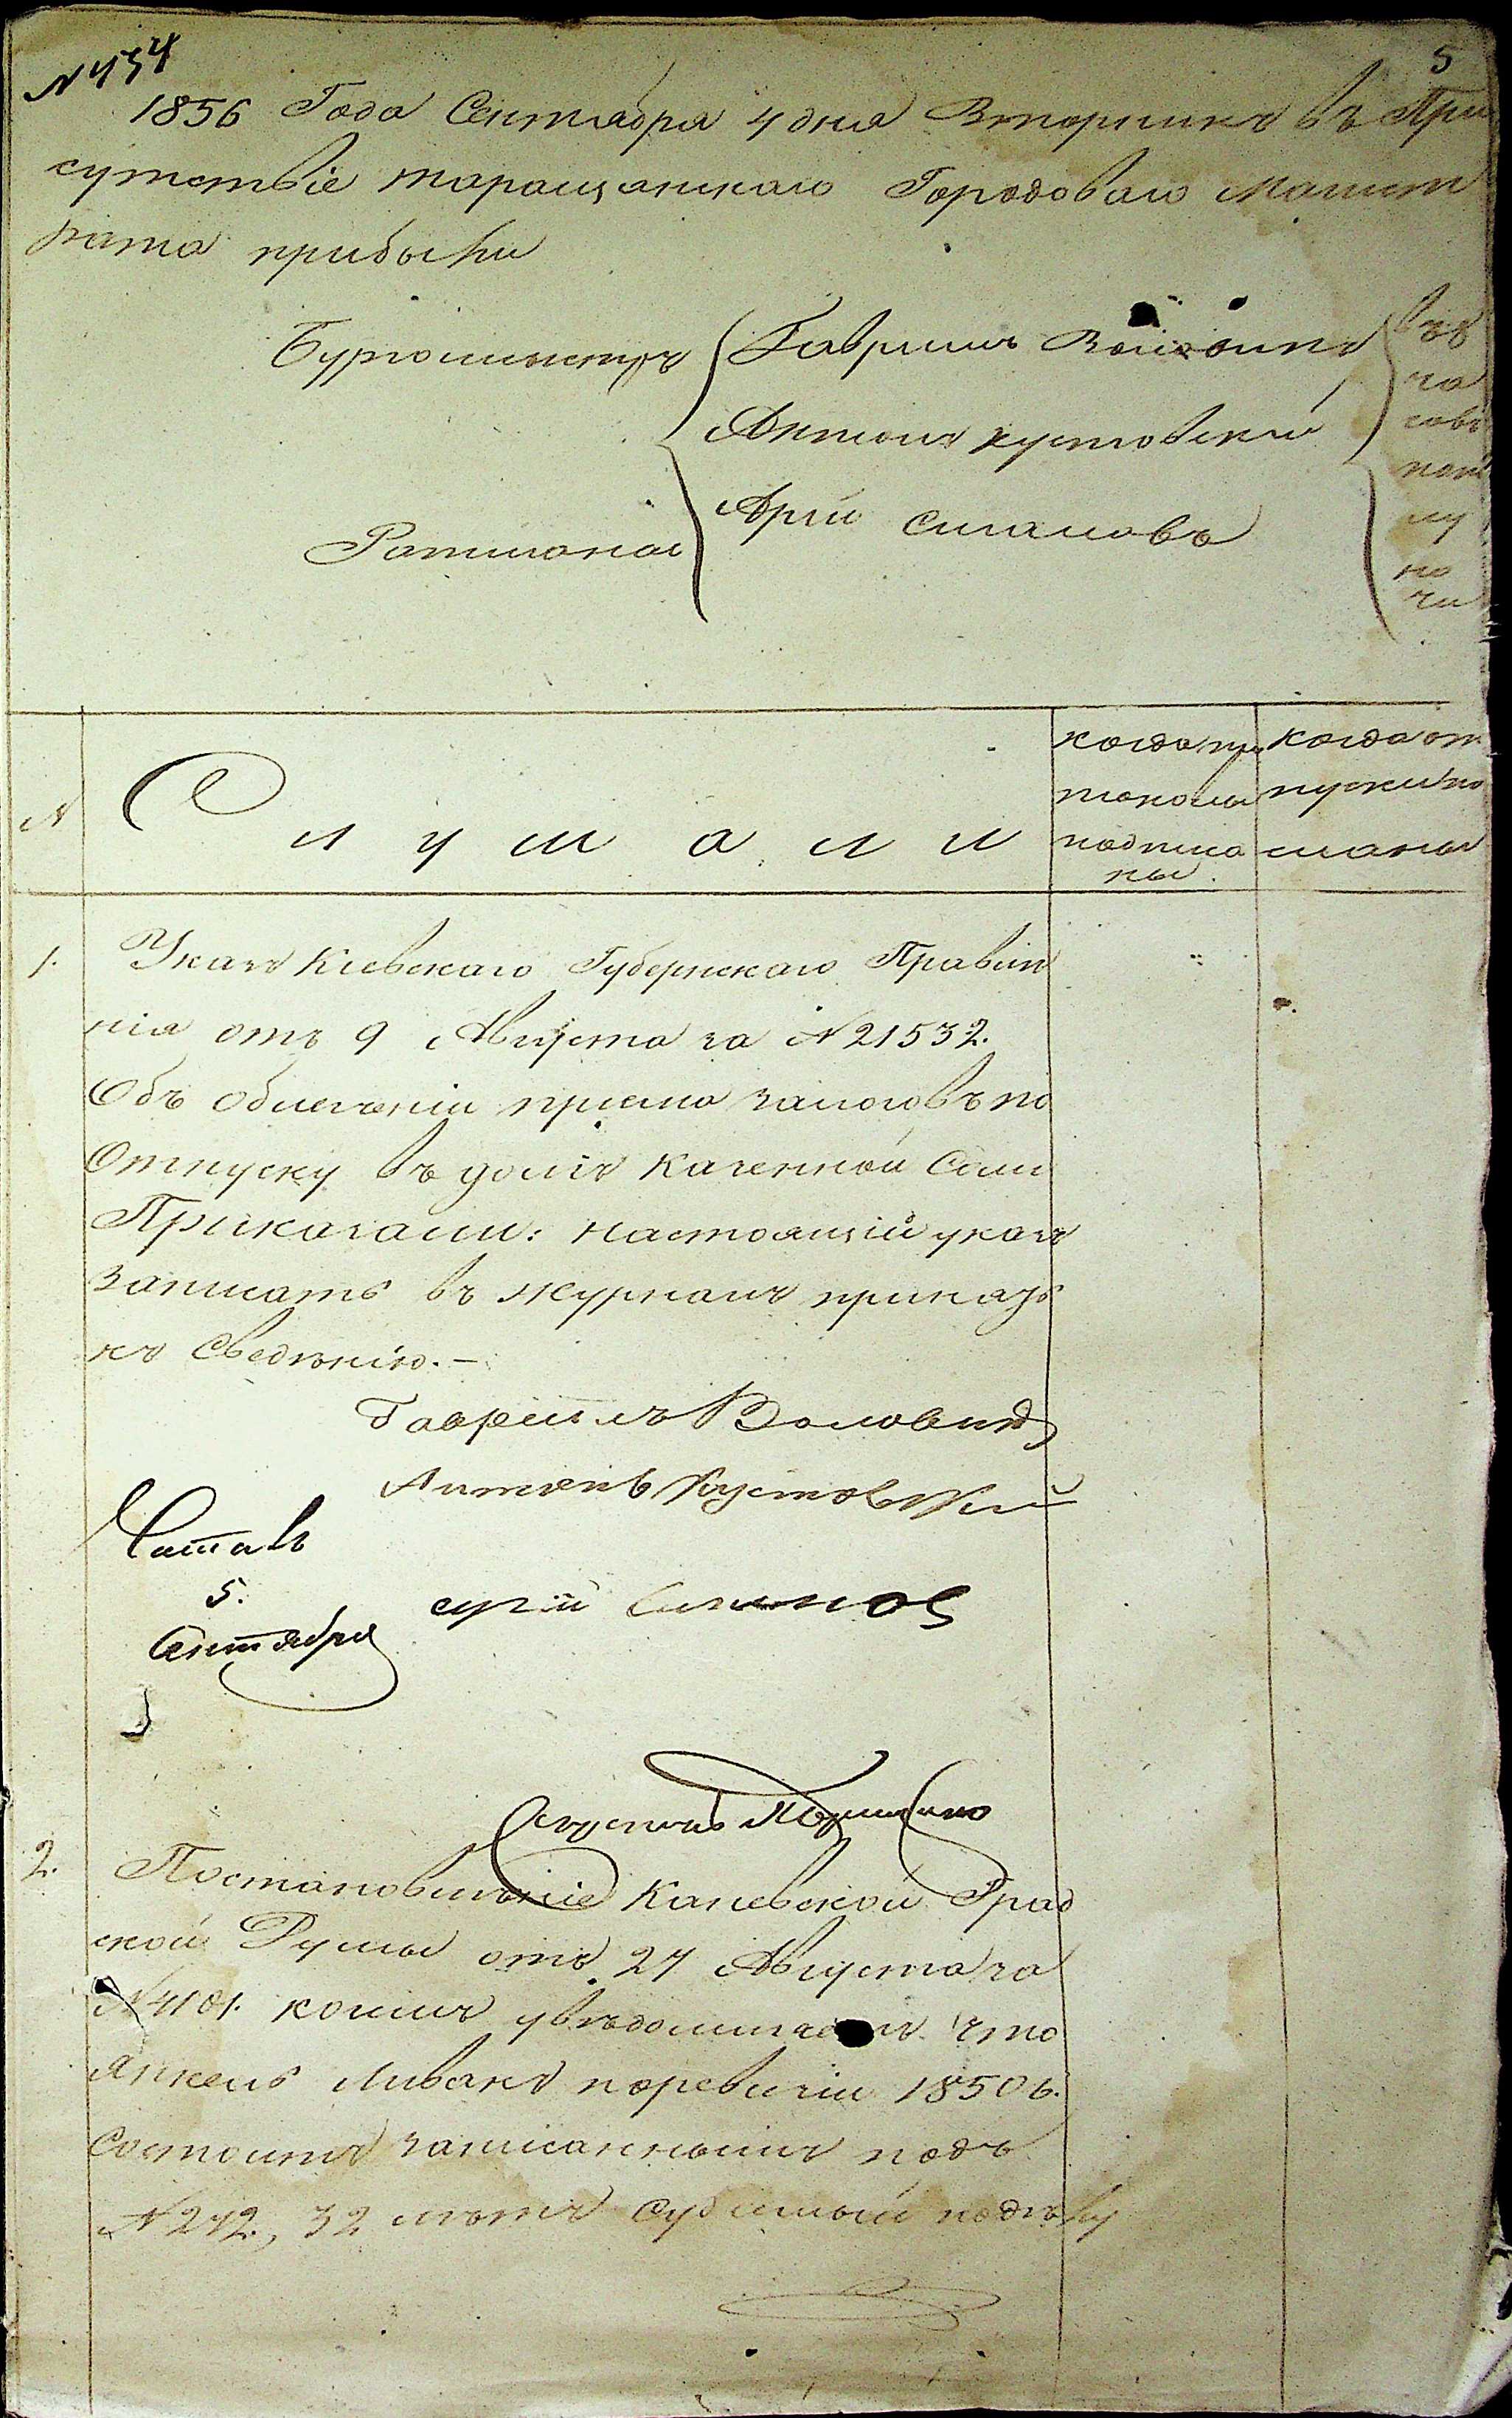 № 434
5
1856 Года Сентября 4 дня Вторникъ въ При
сутствіе Таращанскаго Городоваго Магист
рата прибыли
Бургомистръ
Гавриилъ
Антонъ Кустовскій
Ратманы
въ 8
ча
совъ
полу
но
чи
№
Слушали
когда про
токолы
подписа
ны.
когда от
пуски по
сланы
1. Указъ Кіевскаго Губернскаго Правле
нія отъ 9 Августа за № 21532.
Объ облегченіи пріема залоговъ по
Отпуску въ долгъ Казенной Соли
Приказали: настоящій указъ
записать въ журналъ принять
къ Сведенію. –
Гавриилъ Воловикъ
Антонъ Кустовскій
Читалъ
5.
Сентября
2. Постановленіе Каневской Град
ской Думы отъ 27 Августа за
№ 4101. коимъ увѣдомляетъ что
Янкель Ливакъ по ревизіи 1850 г.
Состоитъ записаннымъ подъ
№ 272., 32 лѣтъ Судимый по дѣлу